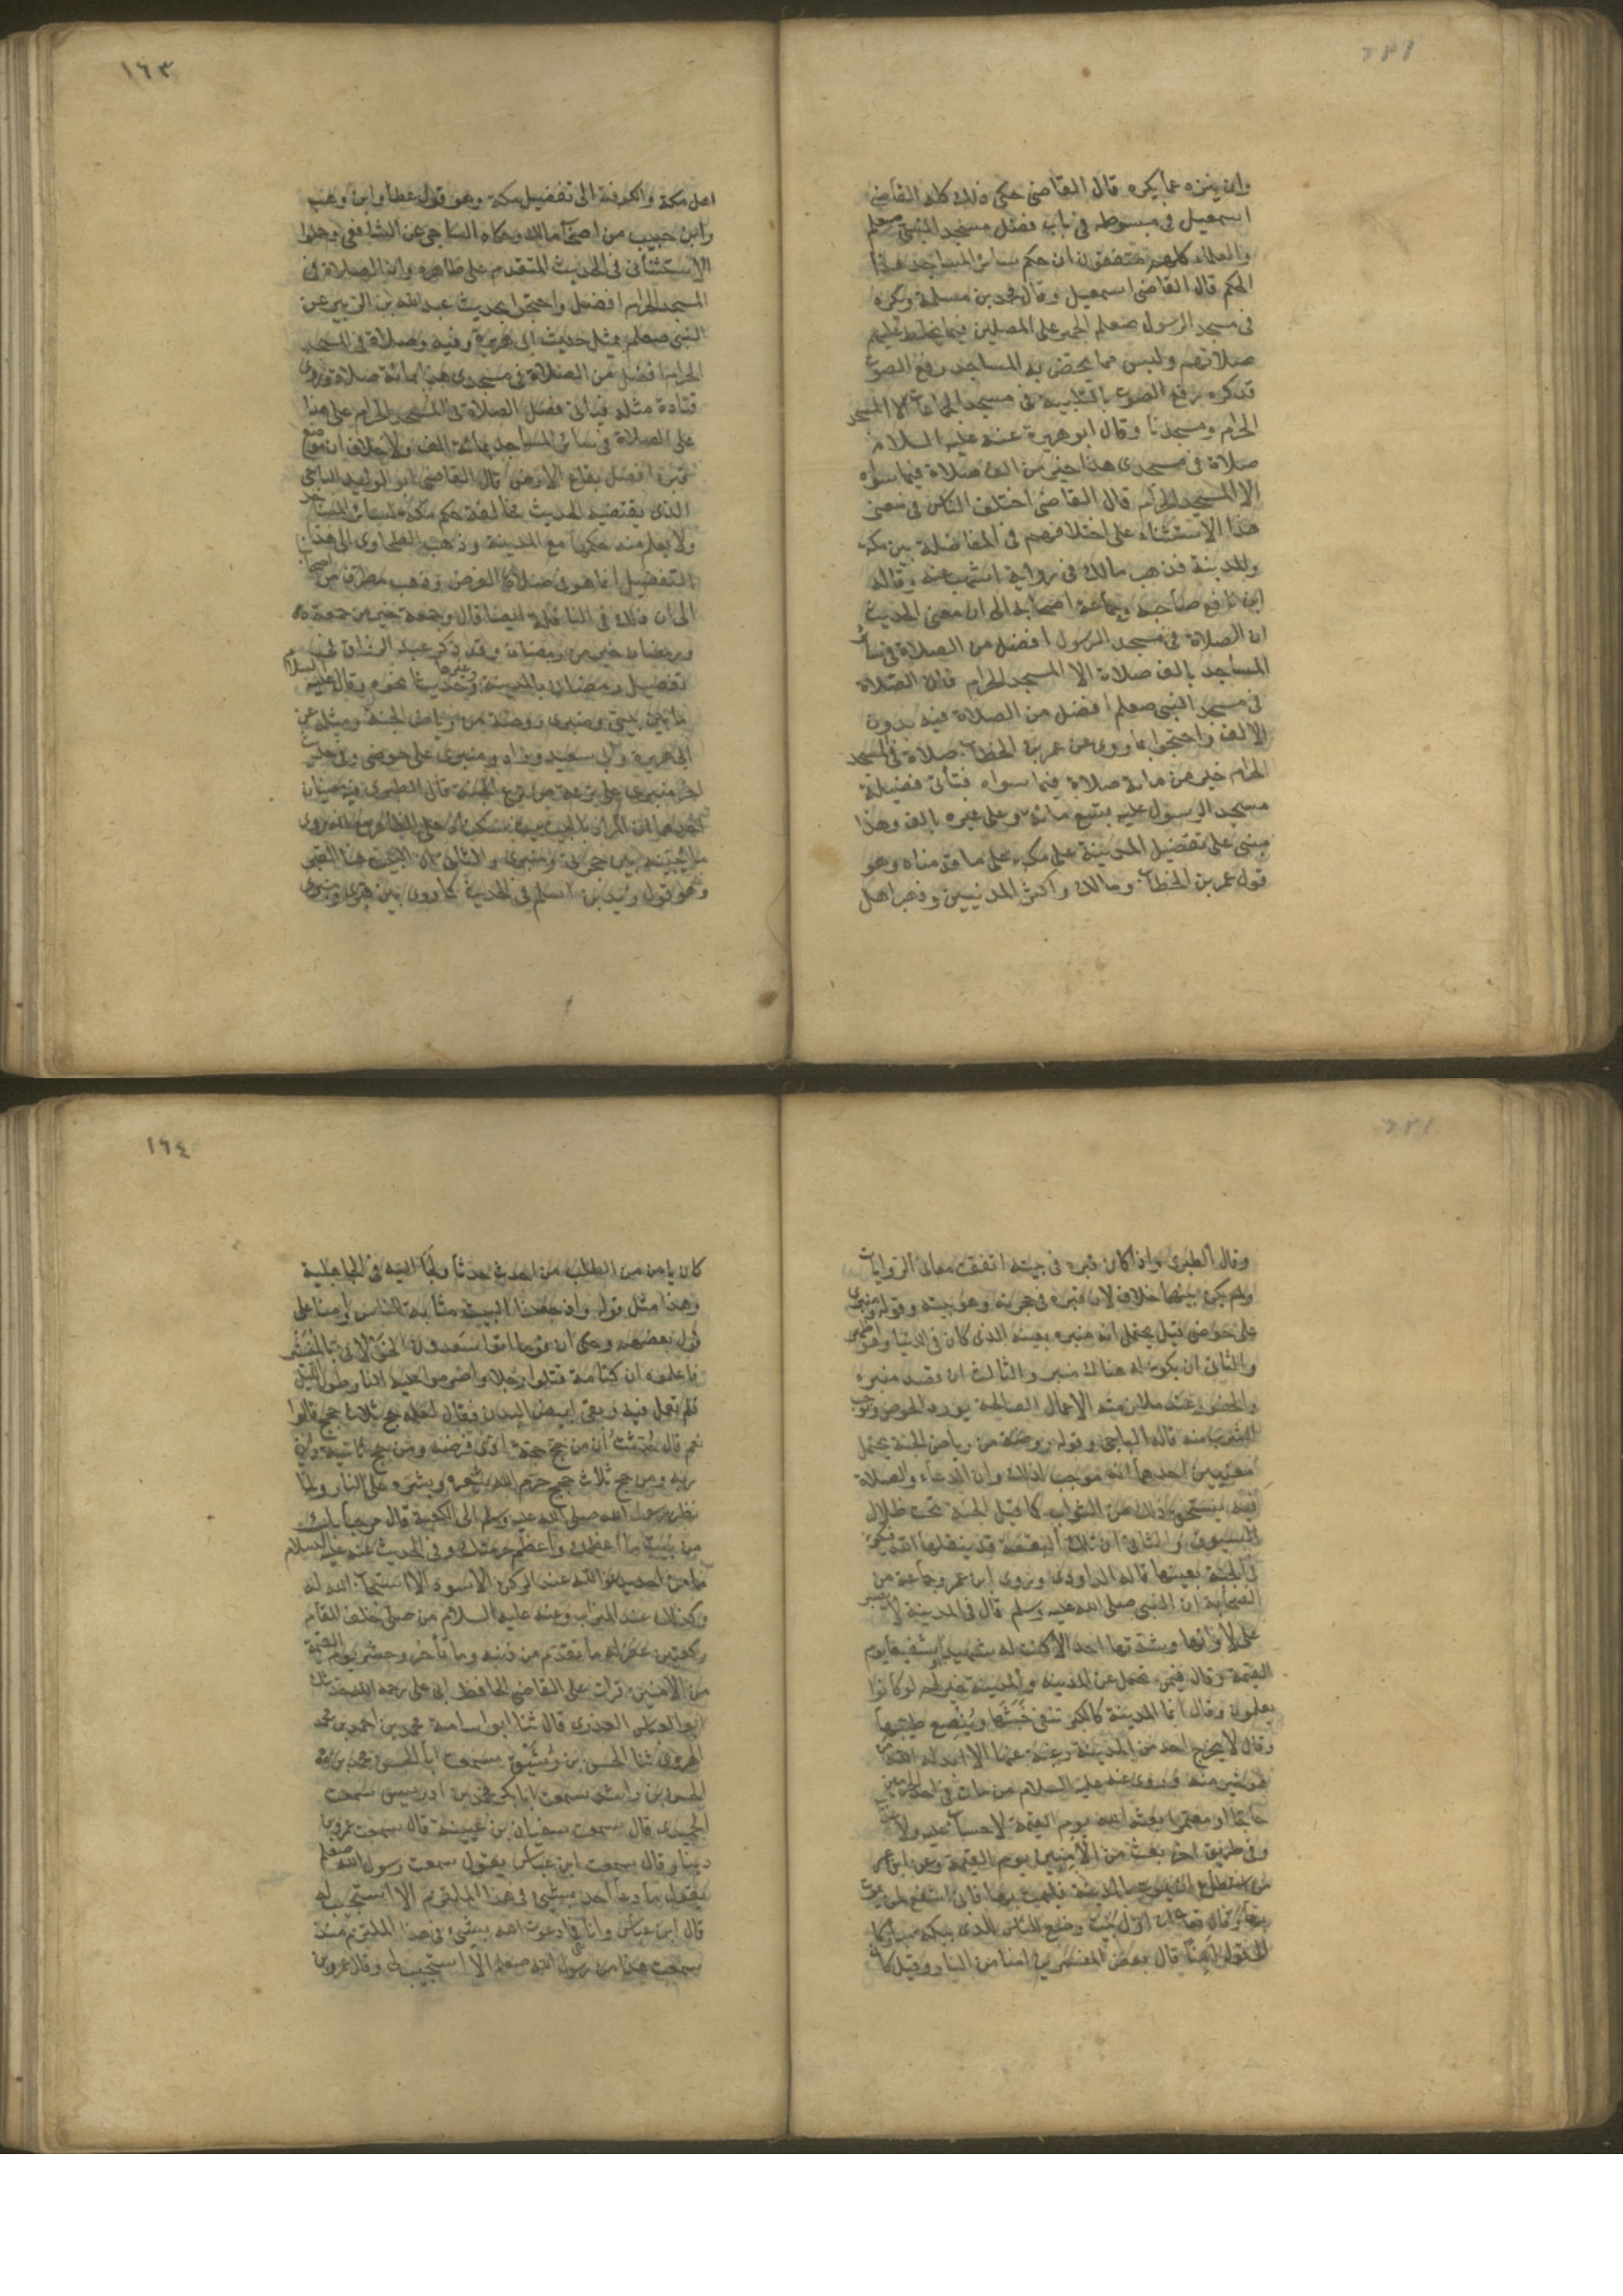 وان ينزه عما يكره قال القاضى حكى ذلك كله القاضى
اسمعيل فى مبسوطه فى باب فضل مسجد النبى صعلم
والعلماء كلهم متفقون ان حكم سائر المساجد هذا
الحكم قال القاضى اسمعيل وقال محمد بن مسلمة ويكره
فى مسجد الرسول صعلم الجهر على المصلين فيما يخلط عليهم
صلاتهم وليس مما يختص به المساجد رفع الصوت
قد كره رفع الصوت بالتلبية فى مسجد الجماعات الا المسجد
الحرام ومسجدنا وقال ابو هريرة عنه عليه السلام
صلاة فى مسجدى هذا خير من الف صلاة فيما سواه
الا المسجد الحرام قال القاضى اختلف الناس فى معنى
هذا الاستثناء على اختلافهم فى المفاضلة بين مكة
والمدينة فذهب مالك فى رواية اشهب عنه وقاله
ابن نافع صاحبه وجماعة اصحابه الى ان معنى الحديث
ان الصلاة فى مسجد الرسول افضل من الصلاة فى سائر
المساجد بالف صلاة الا المسجد الحرام فان الصلاة
فى مسجد النبى صعلم افضل من الصلاة فيه بدون
الالف واحتجوا بما روى عن عمر بن الخطاب صلاة فى المسجد
الحرام خير من مائة صلاة فيما سواه فتأتى فضيلة
مسجد الرسول عليه بتسع مائة وعلى غيره بالف وهذا
مبنى على تفضيل المدينة على مكة على ما قدمناه وهو
قول عمر بن الخطاب ومالك واكثر المدنيين وذهب اهل
١٦٣
اهل مكة والكوفة الى تفضيل مكة وهو قول عطاء وابن وهب
وابن حبيب من اصحاب مالك وحكاه الساجى عن الشافعى وحملوا
الاستثناء فى الحديث المتقدم على ظاهره وان الصلاة فى
المسجد الحرام افضل واحتجوا بحديث عبد الله بن الزبير عن
النبى صعلم بمثل حديث ابى هريرة وفيه وصلاة فى المسجد
الحرام افضل من الصلاة فى مسجدى هذا بمائة صلاة وروى
قتادة مثله فيأتى فضل الصلاة فى المسجد الحرام على هذا
على الصلاة فى سائر المساجد بمائة الف ولا خلاف ان موضع
قبره افضل بقاع الارض قال القاضى ابو الوليد الباجى
الذى يقتضيه الحديث مخالفة حكم مكة لسائر المساجد
ولا يعلم منه حكمها مع المدينة وذهب الطحاوى الى هذا
التفضيل انما هو فى صلاة الفرض وذهب مطرف من اصحابنا
الى ان ذلك فى النافلة ايضا قال وجمعة خير من جمعة
ورمضان خير من رمضان وقد ذكر عبد الرزاق فى
تفضيل رمضان بالمدينة وغيرها حديثا نحوه وقال عليه السلام
ما بين بيتى ومنبرى روضة من رياض الجنة ومثله عن
ابى هريرة وابى سعيد وزاد ومنبرى على حوضى وفى حديث
اخر منبرى على ترعة من ترع الجنة قال الطبرى فيه معنيان
احدهما ان المراد بالبيت بيت سكناه على الظاهر مع انه روى
ما يبينه بين حجرتى ومنبرى والثانى ان البيت هنا القبر
وهو قول زيد بن اسلم فى الحديث كما روى بين قبرى ومنبرى
وقال الطبرى واذا كان قبره فى بيته اتفقت معانى الروايات
ولم يكن بينها خلاف لان قبره فى حجرته وهو بيته وقوله ومنبرى
على حوضى قيل يحتمل انه منبره بعينه الذى كان فى الدنيا وهو اظهر
والثانى ان يكون له هناك منبر والثالث ان قصد منبره
والحضور عنده لملازمة الاعمال الصالحة يورد الحوض ويوجب
الشرب منه قاله الباجى وقوله روضة من رياض الجنة يحتمل
معنيين احدهما انه موجب لذلك وان الدعاء والصلاة
فيه يستحق ذلك من الثواب كما قيل الجنة تحت ظلال
السيوف والثانى ان تلك البقعة قد ينقلها الله فتكون
فى الجنة بعينها قاله الداودى وروى ابن عمر وجماعة من
الصحابة ان النبى صلى الله عليه وسلم قال فى المدينة لا يصبر
على لاوائها وشدتها احد الا كنت له شهيدا او شفيعا يوم
القيمة وقال فيمن تحمل عن المدينة والمدينة خير لهم لو كانوا
يعلمون وقال انما المدينة كالكير تنفى خبثها وينصع طيبها
وقال لا يخرج احد من المدينة رغبة عنها الا ابدله الله
خيرا منه وروى عنه عليه السلام من مات فى احد الحرمين
حاجا او معتمرا بعثه الله يوم القيمة لا حساب عليه ولا عذاب
وفى طريق اخر بعث من الآمنين يوم القيمة وعن ابن عمر
من استطاع ان يموت بالمدينة فليمت بها فانى اشفع لمن يموت
بها وقال تعالى ان اول بيت وضع للناس للذى ببكة مباركا
الى قوله آمنا قال بعض المفسرين آمنا من النار وقيل كان
١٦٤
كان يامن من الطلب من احدث حدثا ولجأ اليه فى الجاهلية
وهذا مثل قوله واذ جعلنا البيت مثابة للناس وامنا على
قول بعضهم وحكى ان قوما اتوا سعدون الخولانى بالمنستير
فاعلموه ان كتامة قتلوا رجلا واضرموا عليه النار طول الليل
فلم تعمل فيه وبقى ابيض البدن فقال لعله حج ثلاث حجج قالوا
نعم قال حدثت ان من حج حجة ادى فرضه ومن حج ثانية داين
ربه ومن حج ثلاث حجج حرم الله شعره وبشره على النار ولما
نظر رسول الله صلى الله عليه وسلم الى الكعبة قال مرحبا بك
من بيت ما اعظمك واعظم حرمتك وفى الحديث عنه عليه السلام
ما من احد يدعو الله عند الركن الاسود الا استجاب الله له
وكذلك عند الميزاب وعنه عليه السلام من صلى خلف المقام
ركعتين غفر له ما تقدم من ذنبه وما تأخر وحشر يوم القيمة
من الآمنين قرأت على القاضى الحافظ ابى على رحمه الله حدثك
ابو العباس العذرى قال ثنا ابو اسامة محمد بن احمد بن محمد
الهروى ثنا الحسن بن رشيق سمعت ابا الحسن محمد بن
الحسن بن راشد سمعت ابا بكر محمد بن ادريس سمعت
الحميدى قال سمعت سفيان بن عيينة قال سمعت عمرو بن
دينار قال سمعت ابن عباس يقول سمعت رسول الله صعلم
يقول ما دعا احد بشئ فى هذا الملتزم الا استجيب له
قال ابن عباس وانا فما دعوت الله بشئ فى هذا الملتزم منذ
سمعت هذا من رسول الله صعلم الا استجيب لى وقال عمرو بن